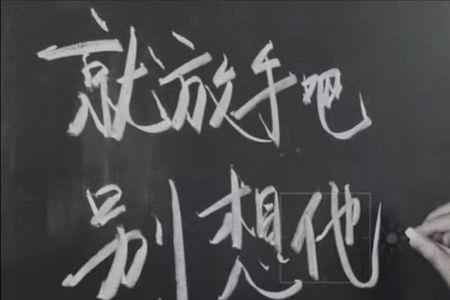 就放手吧
别想他